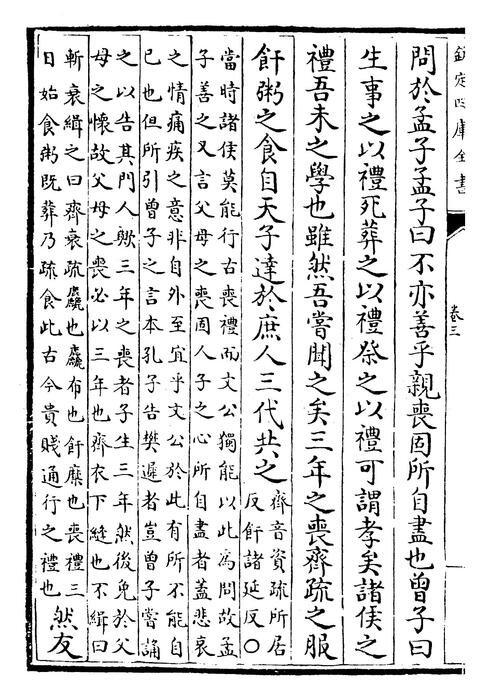 欽定四庫全書
卷三
問於孟子孟子曰不亦善乎親喪固所自盡也曾子曰
生事之以禮死葬之以禮祭之以禮可謂孝矣諸侯之
禮吾未之學也雖然吾嘗聞之矣三年之喪齊疏之服
飦粥之食自天子達於庶人三代共之齊音資疏所居
反飦諸延反○
當時諸侯莫能行古喪禮而文公獨能以此為問故孟
子善之又言父母之喪固人子之心所自盡者蓋悲哀
之情痛疾之意非自外至宜乎文公於此有所不能自
已也但所引曾子之言本孔子告樊遲者豈曾子嘗誦
之以告其門人歟三年之喪者子生三年然後免於父
母之懷故父母之喪必以三年也齊衣下縫也不緝曰
斬衰緝之曰齊衰疏麤也麤布也飦糜也喪禮三
日始食粥既葬乃疏食此古今貴賤通行之禮也
然友